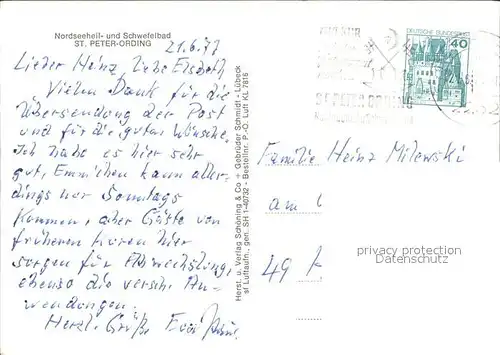 Nordseeheil- und Schwefelbad
ST. PETER-ORDING
21.6.77
Lieber Heinz, liebe Elsbeth
Vielen Dank für die
Übersendung der Post
und für die guten Wünsche
Ich habe es hier sehr
gut, Emmchen kann aller-
dings nur Sonntags
kommen, aber Gäste von
früheren Kuren hier
sorgen für Abwechslung,
ebenso die versch. An-
wendungen.
Herzl. Grüße
Herst. u. Verlag Schöning & Co + Gebrüder Schmidt - Lübeck
st Luftaufn., gen. SH 1-40732 - Bestellnr. P.-O. Luft KL 7816
DEUTSCHE BUNDESPOST
40
ST. PETER ORDING
Familie Heinz Milewski
am
49
privacy protection
Datenschutz